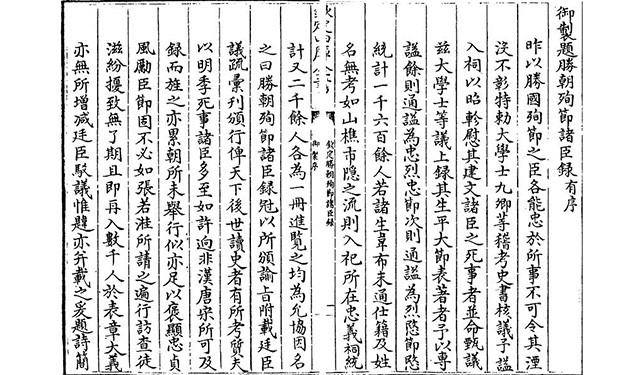 御製題勝朝殉節諸臣錄有序
昨以勝國殉節之臣各能忠於所事不可令其湮
沒不彰特勅大學士九卿等稽考史書核議予諡
入祠以昭軫慰其建文諸臣之死事者並命甄議
茲大學士等議上錄其生平大節表著者予以專
諡餘則通諡為忠烈忠節次則通諡為烈愍節愍
統計一千六百餘人若諸生韋布未通仕籍及姓
名無考如山樵市隐之流則入祀所在忠義祠統
欽定勝朝殉節諸臣錄
御製序
計又二千餘人各為一冊進覽之均為允協因名
之曰勝朝殉節諸臣錄冠以所頒諭旨附載廷臣
議疏彙刊頒行俾天下後世讀史者有所考質夫
以明季死事諸臣多至如許迥非漢唐宋所可及
錄而旌之亦累朝所未舉行似亦足以褒顯忠貞
風勵臣節固不必如張若溎所請之遍行訪查徒
滋紛擾致無了期且即再入數千人於表章大義
亦無所增減廷臣駁議惟韙亦并載之爰題詩簡